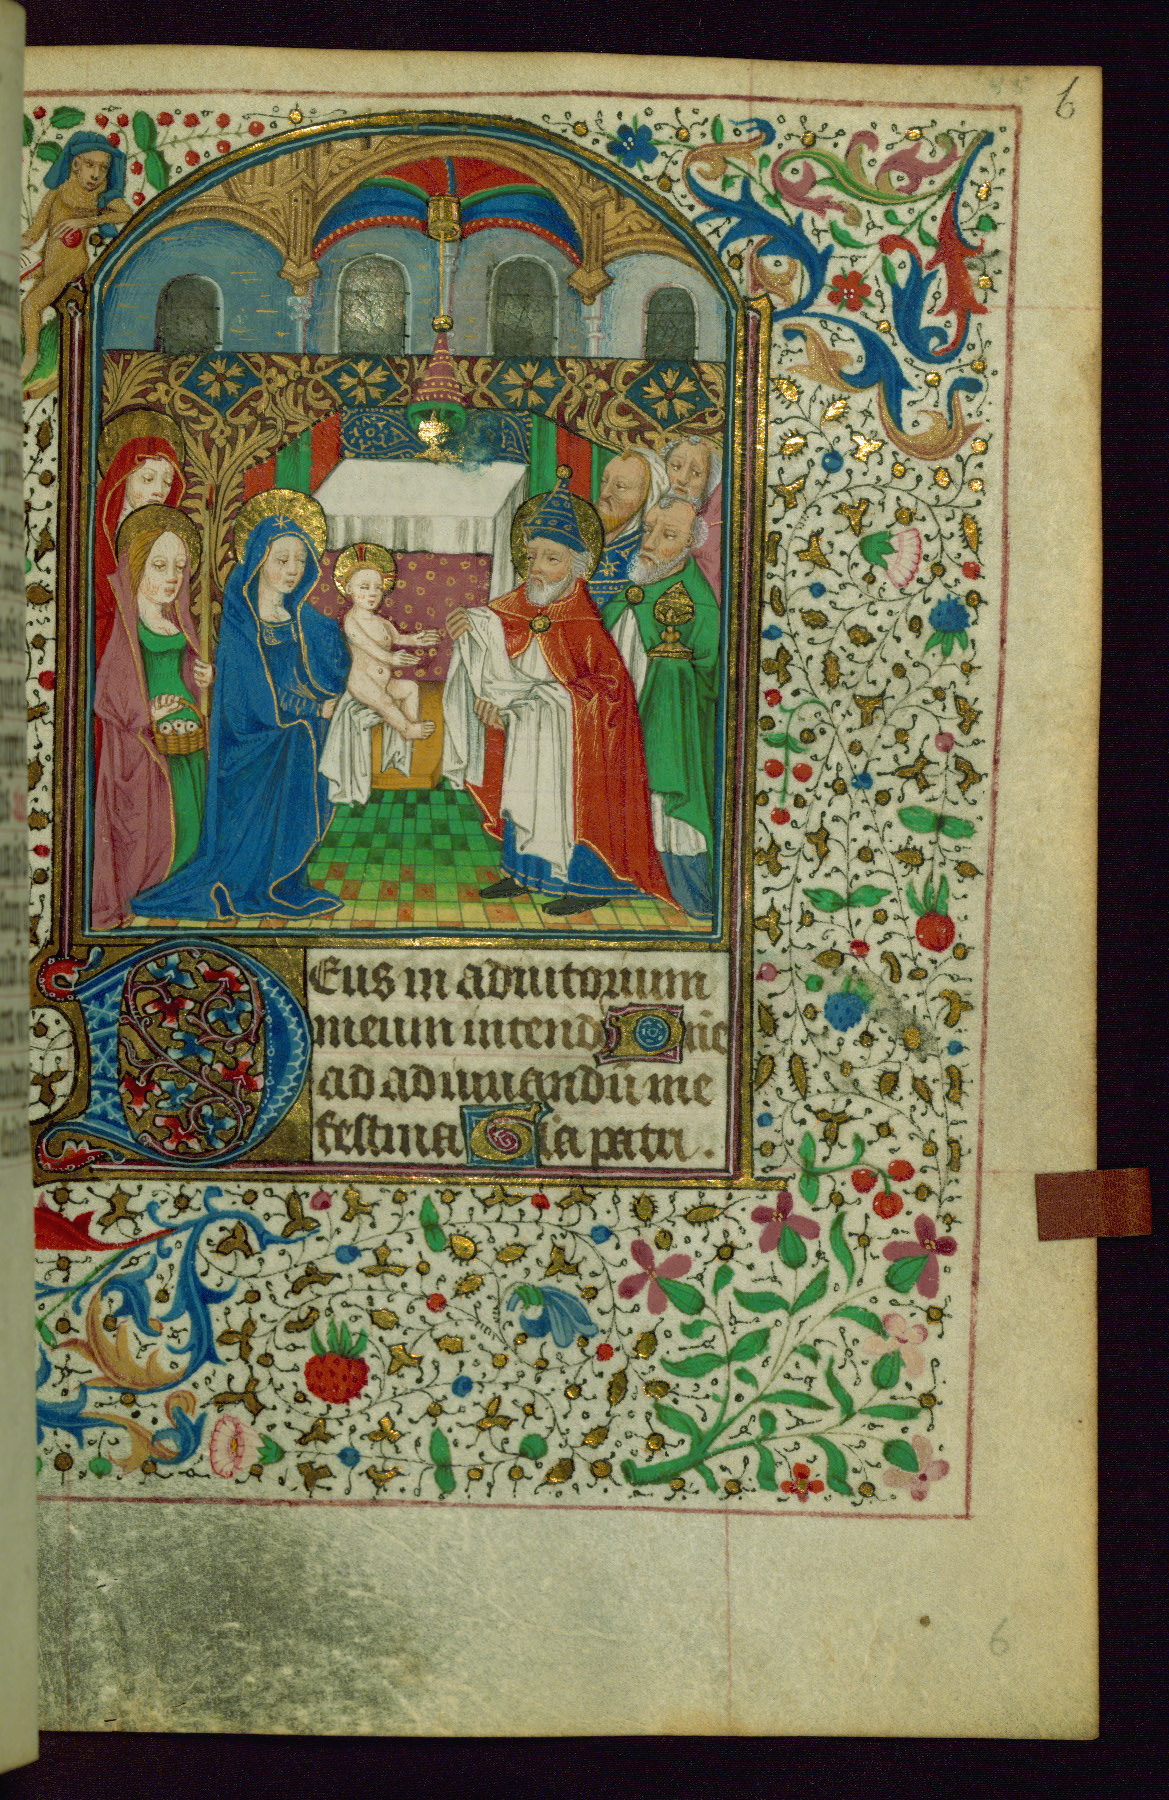 6
Deus in adiutorium
meum intende Dñe
ad adiuuandũ me
festina Gla patri.
6